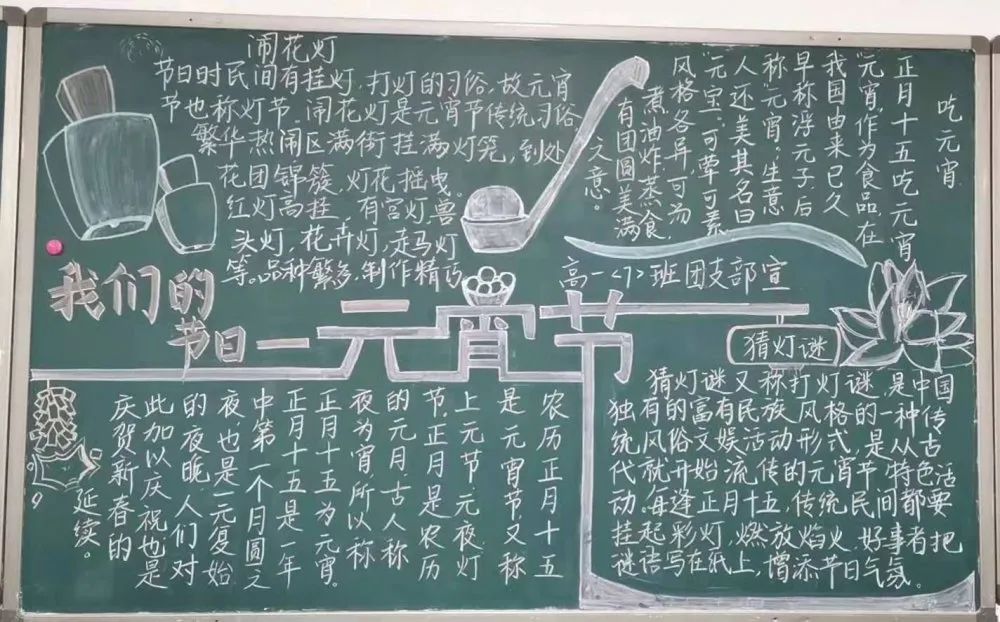 闹花灯
节日时民间有挂灯,打灯的习俗,故元宵
节也称灯节。闹花灯是元宵节传统习俗
繁华热闹区满街挂满灯笼,到处
花团锦簇,灯花摇曳。
红灯高挂,有宫灯,兽
头灯,花卉灯,走马灯
等。品种繁多,制作精巧
吃元宵
正月十五吃元宵
"元宵"作为食品,在
我国由来已久
早称"浮元子"后
称"元宵",生意
人还美其名曰
"元宝"。可荤可素
风格各异,可汤
煮油炸蒸食,
有团圆美满
之意。
高一<7>班团支部宣
我们的
节日一元宵节
农历正月十五
是元宵节又称
上元节元夜灯
节。正月是农历
的元月古人称
夜为宵,所以称
正月十五为元宵。
正月十五是一年
中第一个月圆之
夜,也是一元复始
的夜晚,人们对
此加以庆祝也是
庆贺新春的
延续。
猜灯谜
猜灯谜又称打灯谜,是中国
独有的富有民族风格的一种传
统风俗文娱活动形式,是从古
代就开始流传的元宵节特色活
动。每逢正月十五,传统民间都要
挂起彩灯,燃放焰火,好事者把
谜语写在纸上,增添节日气氛。